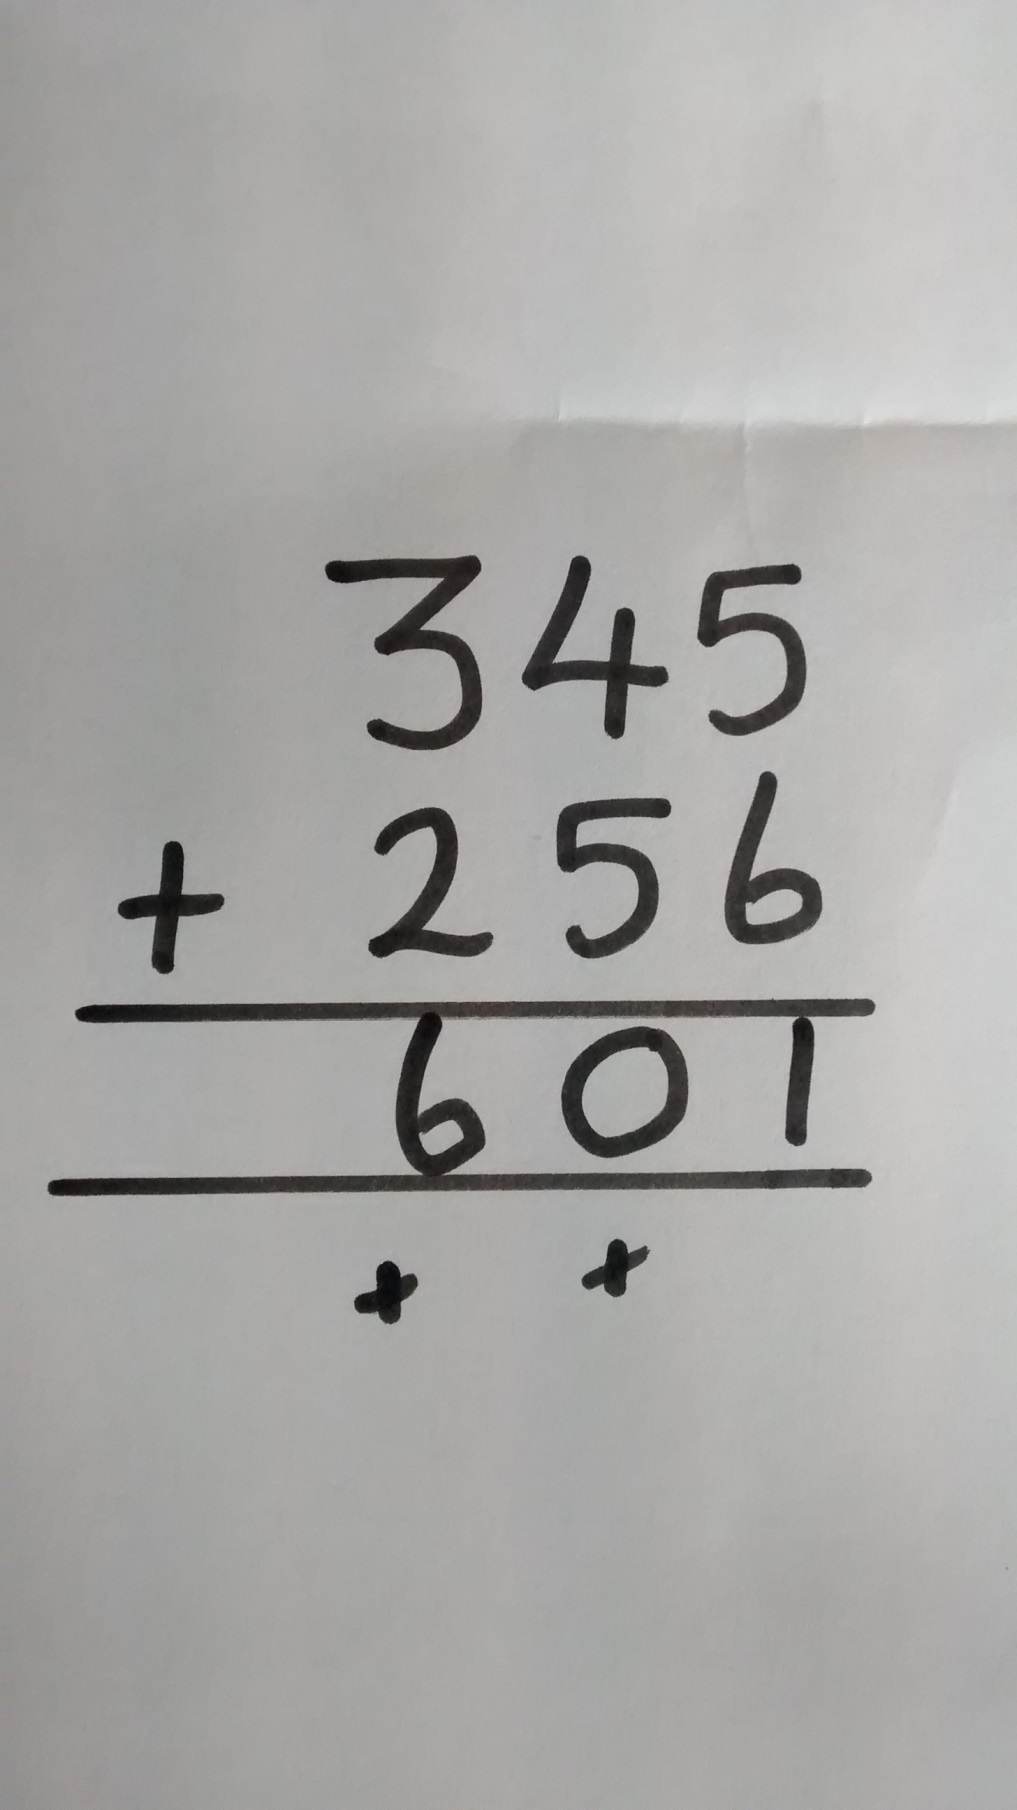 345
+ 256
601